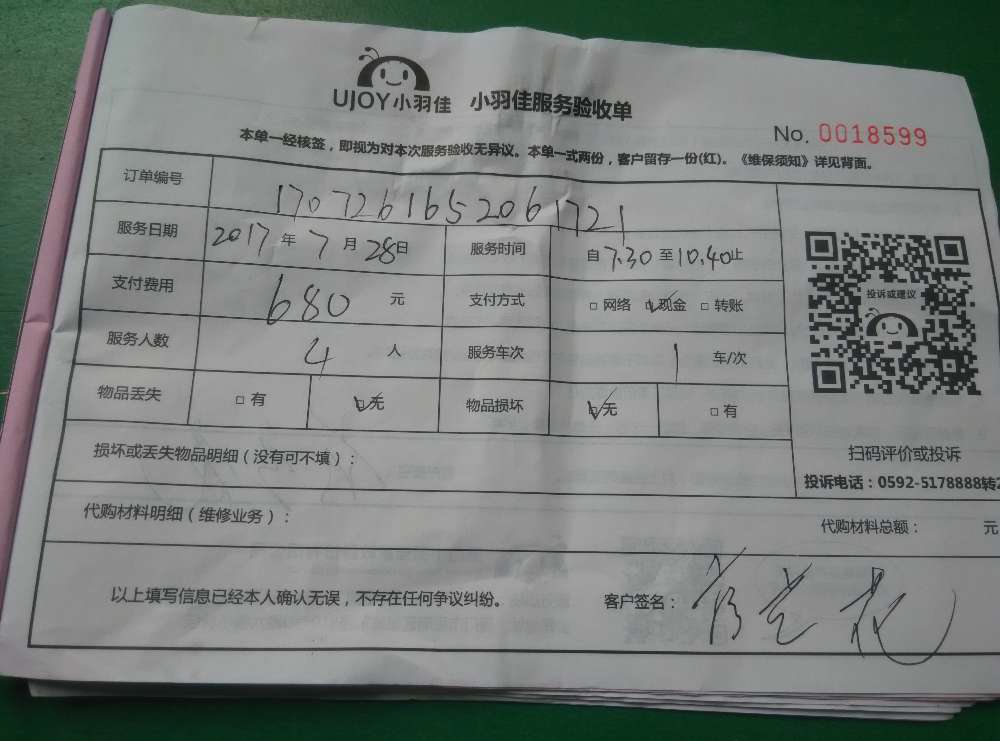 UJOY小羽佳 小羽佳服务验收单
No. 0018599
本单一经核签，即视为对本次服务验收无异议。本单一式两份，客户留存一份(红)。《维保须知》详见背面。
订单编号 1707261652061721
服务日期 2017年7月28日 服务时间 自7:30至10:40止
支付费用 680元 支付方式 □网络 ☑现金 □转账
服务人数 4人 服务车次 1车/次
物品丢失 □有 ☑无 物品损坏 ☑无 □有
投诉或建议
损坏或丢失物品明细（没有可不填）：
扫码评价或投诉
投诉电话：0592-5178888转2
代购材料明细（维修业务）： 代购材料总额： 元
以上填写信息已经本人确认无误，不存在任何争议纠纷。 客户签名：